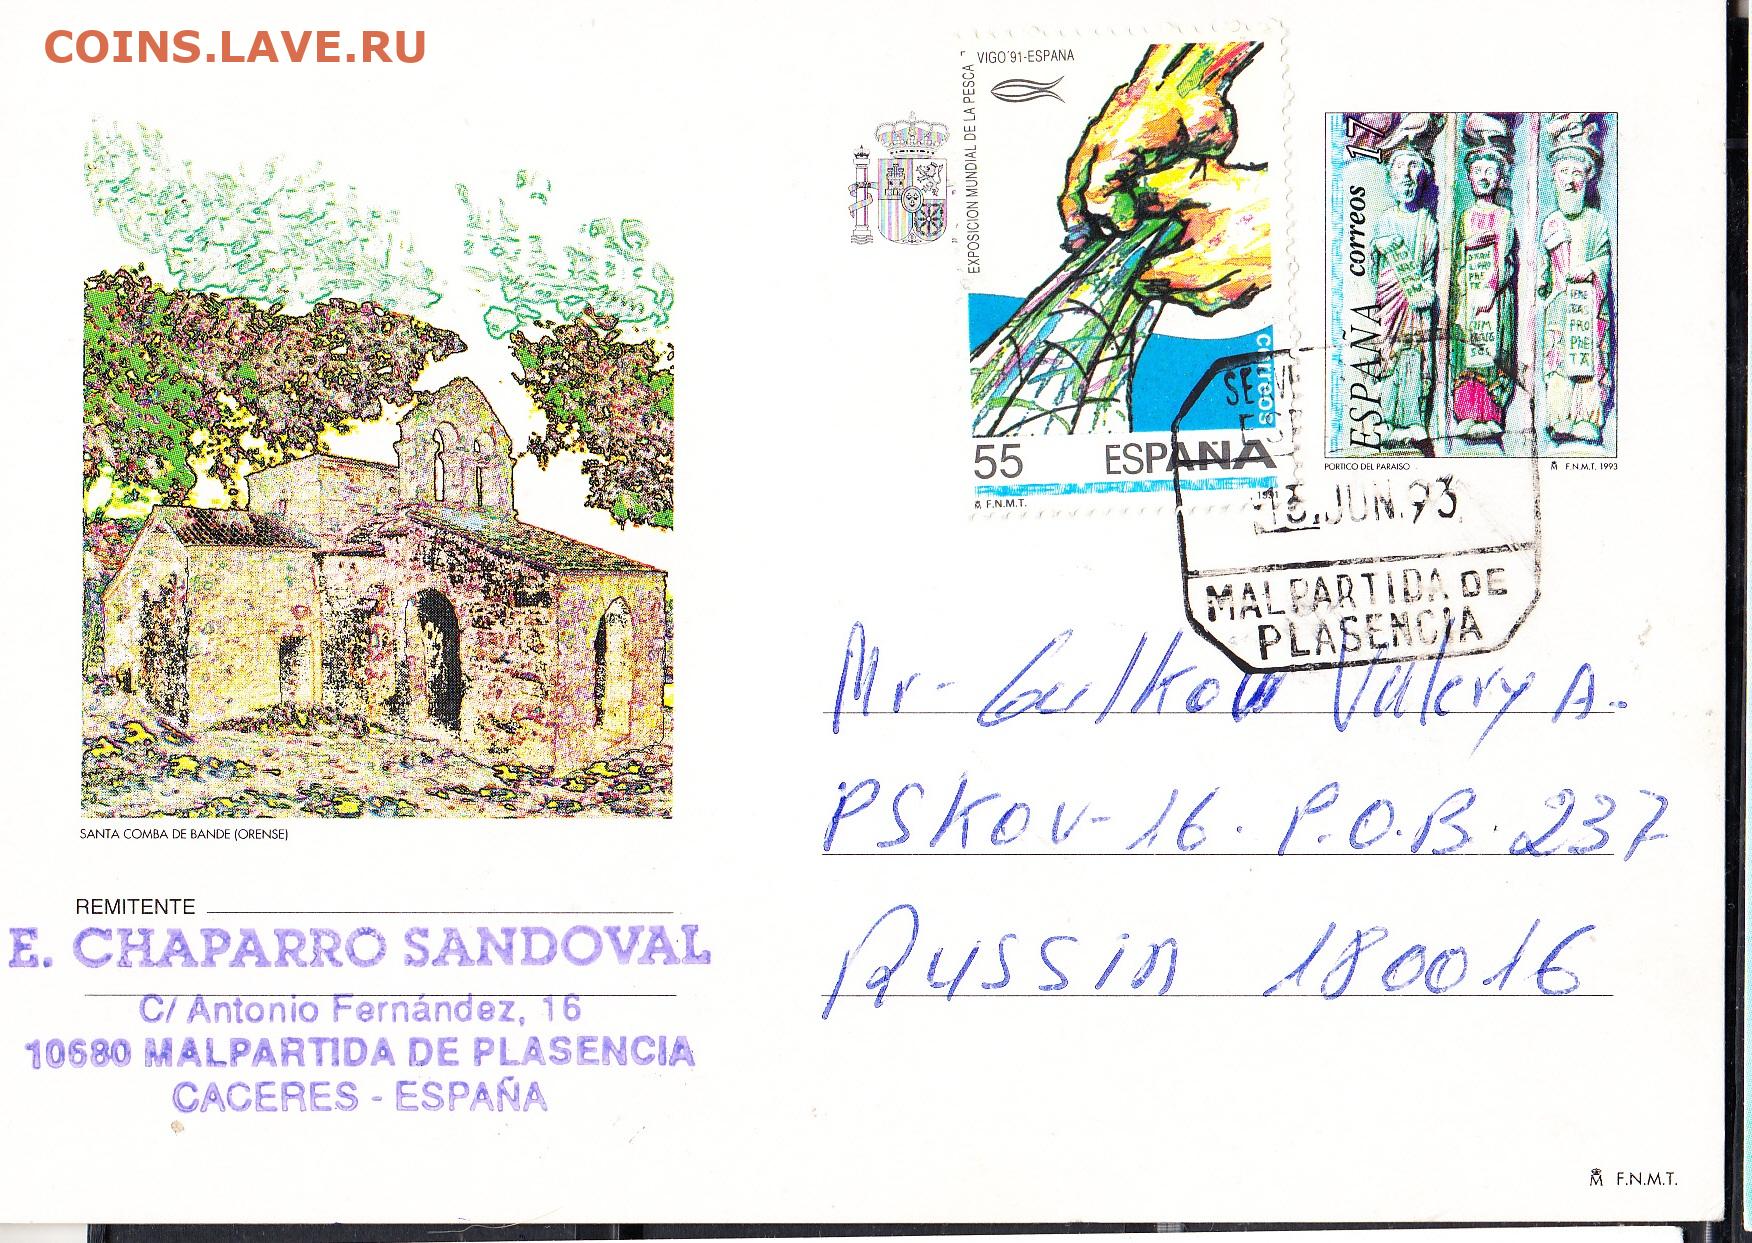 COINS.LAVE.RU
VIGO'91-ESPAÑA
EXPOSICION MUNDIAL DE LA PESCA
correos
55 ESPAÑA
F.N.M.T. 1991
17
ESPAÑA correos
PORTICO DEL PARAISO F.N.M.T. 1993
13.JUN.93
MALPARTIDA DE
PLASENCIA
SANTA COMBA DE BANDE (ORENSE)
REMITENTE
E. CHAPARRO SANDOVAL
C/ Antonio Fernández, 16
10680 MALPARTIDA DE PLASENCIA
CACERES - ESPAÑA
Mr- Gulkov Valery A.
PSKOV-16. P.O.B. 237
RUSSIA 180016
F.N.M.T.